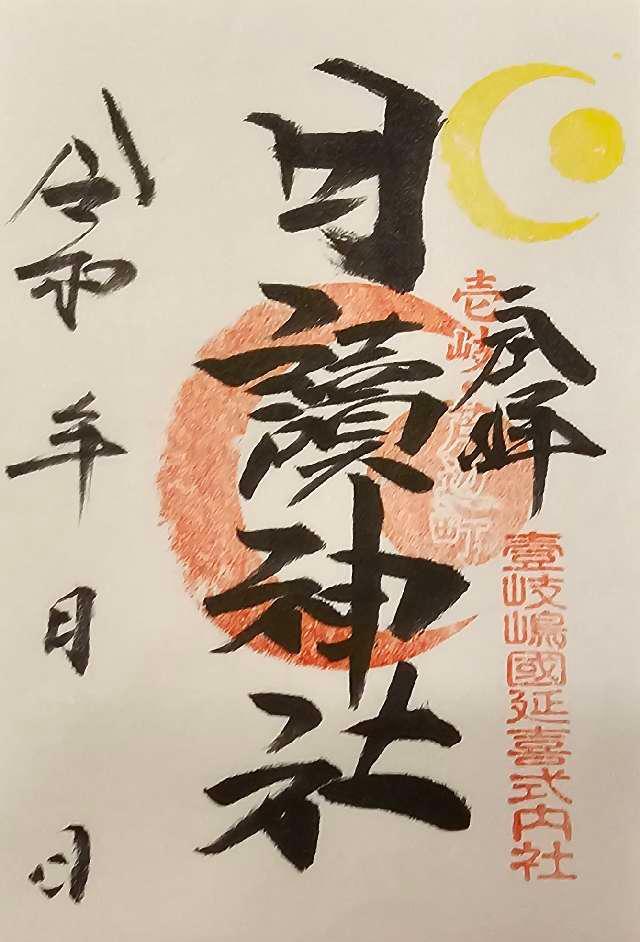 奉拝
壱岐・芦辺町
壹岐嶋國延喜式内社
月讀神社
令和 年 月 日